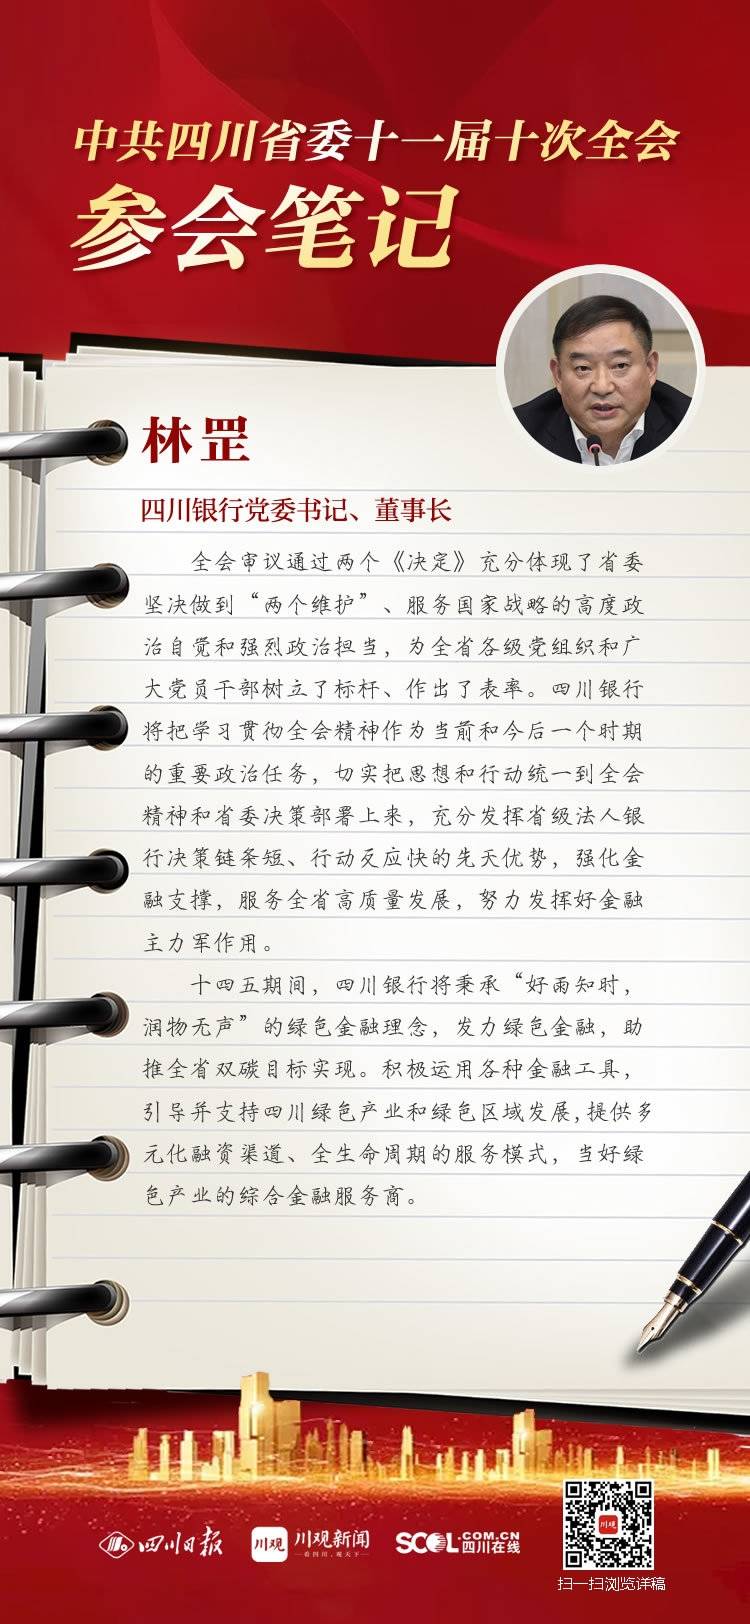 中共四川省委十一届十次全会
参会笔记
林罡
四川银行党委书记、董事长
全会审议通过两个《决定》充分体现了省委
坚决做到“两个维护”、服务国家战略的高度政
治自觉和强烈政治担当，为全省各级党组织和广
大党员干部树立了标杆、作出了表率。四川银行
将把学习贯彻全会精神作为当前和今后一个时期
的重要政治任务，切实把思想和行动统一到全会
精神和省委决策部署上来，充分发挥省级法人银
行决策链条短、行动反应快的先天优势，强化金
融支撑，服务全省高质量发展，努力发挥好金融
主力军作用。
十四五期间，四川银行将秉承“好雨知时，
润物无声”的绿色金融理念，发力绿色金融，助
推全省双碳目标实现。积极运用各种金融工具，
引导并支持四川绿色产业和绿色区域发展,提供多
元化融资渠道、全生命周期的服务模式，当好绿
色产业的综合金融服务商。
四川日报
川观
川观新闻
看四川，观天下
SCOL.COM.CN
四川在线
川观
扫一扫浏览详稿